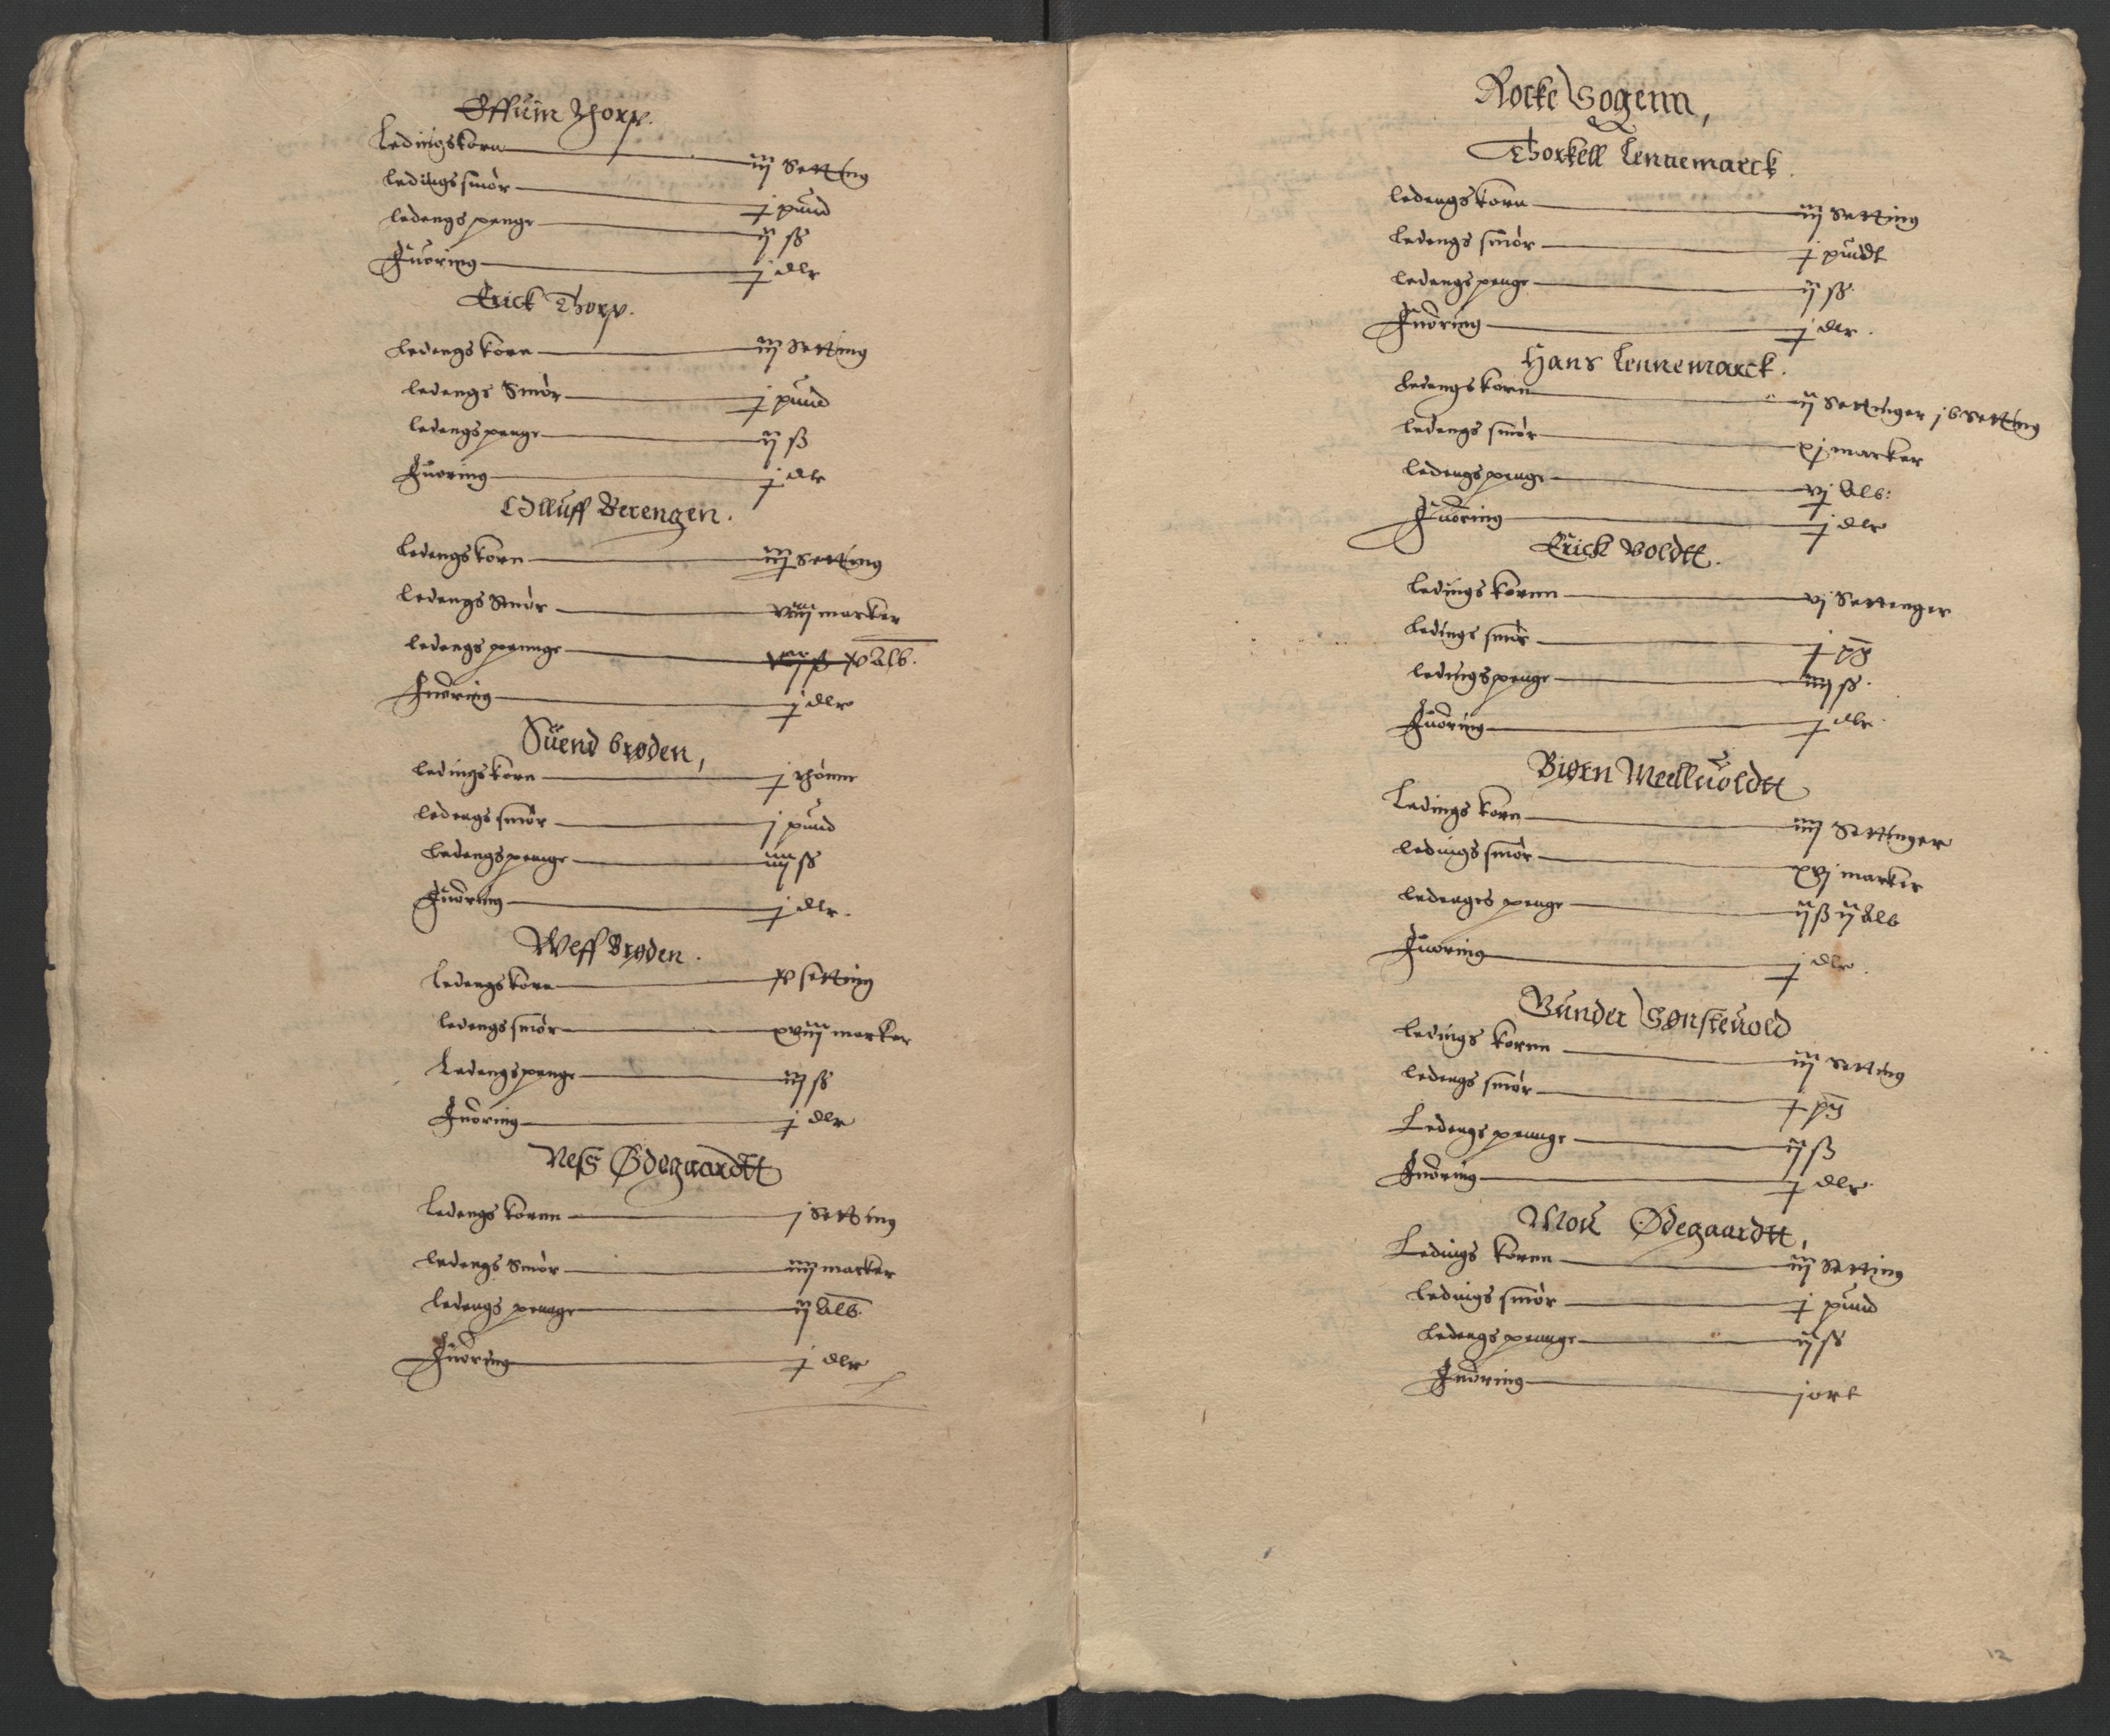 Effuin Thorp.
Ledingskorn iij Setting
ledings smør j pund
ledengs penge ij ß
Fuoring j dlr
Erick Thorp.
Ledengs korn iij Setting
ledengs Smør j pund
ledengs penge ij ß
Fuoring j dlr
Olluff Berengen.
Ledengs korn iij Setting
ledengs Smør viij marker
ledengs pennge x alb.
Fuoring j dlr
Suend broden,
ledings korn j thønne
ledengs smør j pund
Ledengs penge iiij ß
Fuoring j dlr.
Wlff Broden.
Ledengs korn x setting
ledengs smør xviij marker
Ledengs penge iij ß
Fuoring j dlr
Neß Ødegaardtt
Ledengs kornn j Setting
ledengs Smør iiij marker
ledengs pennge ij alb.
Fuoring j dlr
Rocke Sogenn,
Thorkell Lennemarck.
ledengs korn iij Setting
ledengs smør j pundt
ledengs penge ij ß
Fuoring j dlr.
Hans Lennemarck.
Ledengs korn ij Settinger j b Setting
ledengs smør xj marker
ledengs penge vj alb:
Fuoring j dlr
Erick Voldtt.
ledings kornn vj Settenger
Ledings smør j pd
ledings penge iiij ß.
Fuoring j dlr.
Biørn Medluoldtt
Ledings korn iiij Settinger
ledings smør xvj marker
ledenges penge ij ß ij alb
Fuoring j dlr.
Gunder Sønsteuold
Ledings kornn iij Setting
ledengs smør j pd
Ledengs pennge ij ß
Fuoring j dlr.
Mou Ødegaardtt,
Ledings kornn iij Setting
ledings smør j pund
ledengs pennge ij ß
Fuoring j ort
12